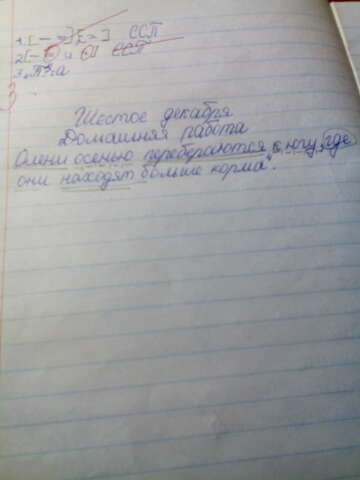 1. [– =] [=] ССП
2 [– =] и ССП
3
Шестое декабря
Домашняя работа
Олени осенью перебегаются к югу, где
они находят больше корма".